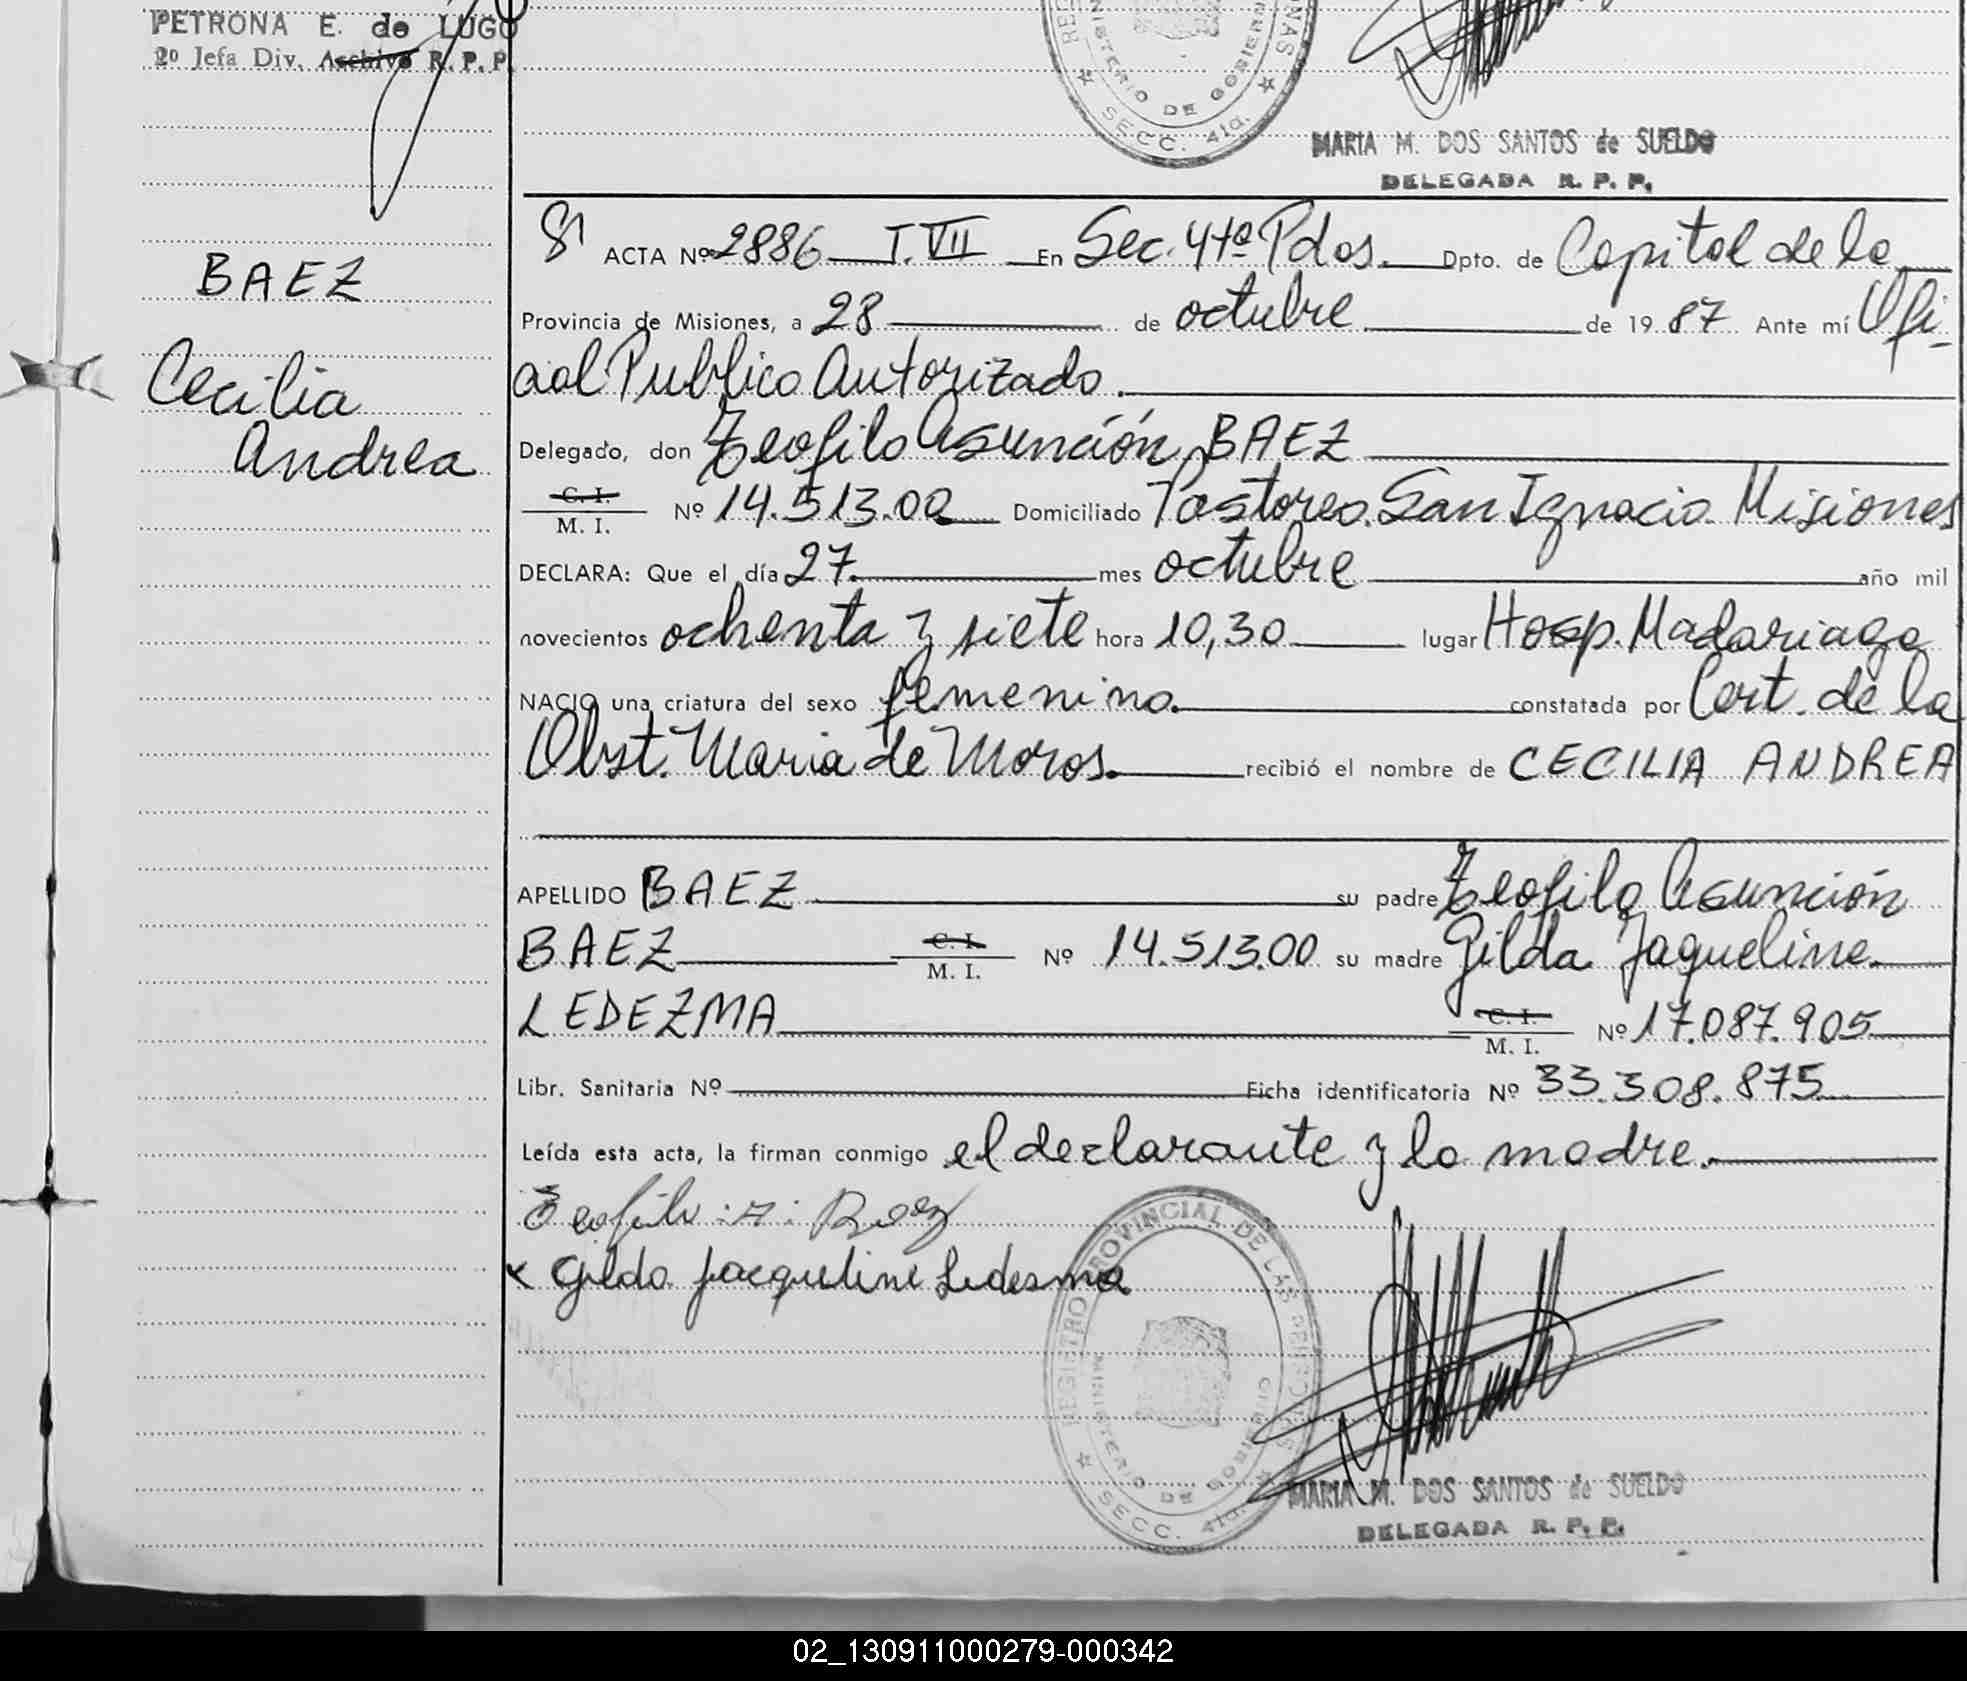 PETRONA E. de LUGO
2º Jefa Div. Archivo R. P. P.
MARIA M. DOS SANTOS de SUELDO
DELEGADA R. P. P.
BAEZ
Cecilia
Andrea
ACTA Nº 2886 T. VII En Sec. 4ta Pdas. Dpto. de Capital de la
Provincia de Misiones, a 28 de octubre de 1987 Ante mí Ofi-
cial Publico Autorizado.
Delegado, don Teofilo Asunción BAEZ
C. I.
M. I. Nº 14.513.00 Domiciliado Pastoreo. San Ignacio. Misiones
DECLARA: Que el día 27. mes octubre año mil
novecientos ochenta y siete hora 10,30 lugar Hosp. Madariaga
NACIO una criatura del sexo femenino. constatada por Cert. de la
Obst. Maria de Moros. recibió el nombre de CECILIA ANDREA
APELLIDO BAEZ su padre Teofilo Asunción
BAEZ C. I. M. I. Nº 14.513.00 su madre Gilda Jaqueline
LEDEZMA C. I. M. I. Nº 17.087.905
Libr. Sanitaria Nº Ficha identificatoria Nº 33.308.875
Leída esta acta, la firman conmigo el declarante y la madre.
Teofilo A. Baez
x Gilda Jacqueline Ledesma
REGISTRO PROVINCIAL DE LAS PERSONAS
MINISTERIO DE GOBIERNO
SECC. 4ta.
MARIA M. DOS SANTOS de SUELDO
DELEGADA R. P. P.
02_130911000279-000342